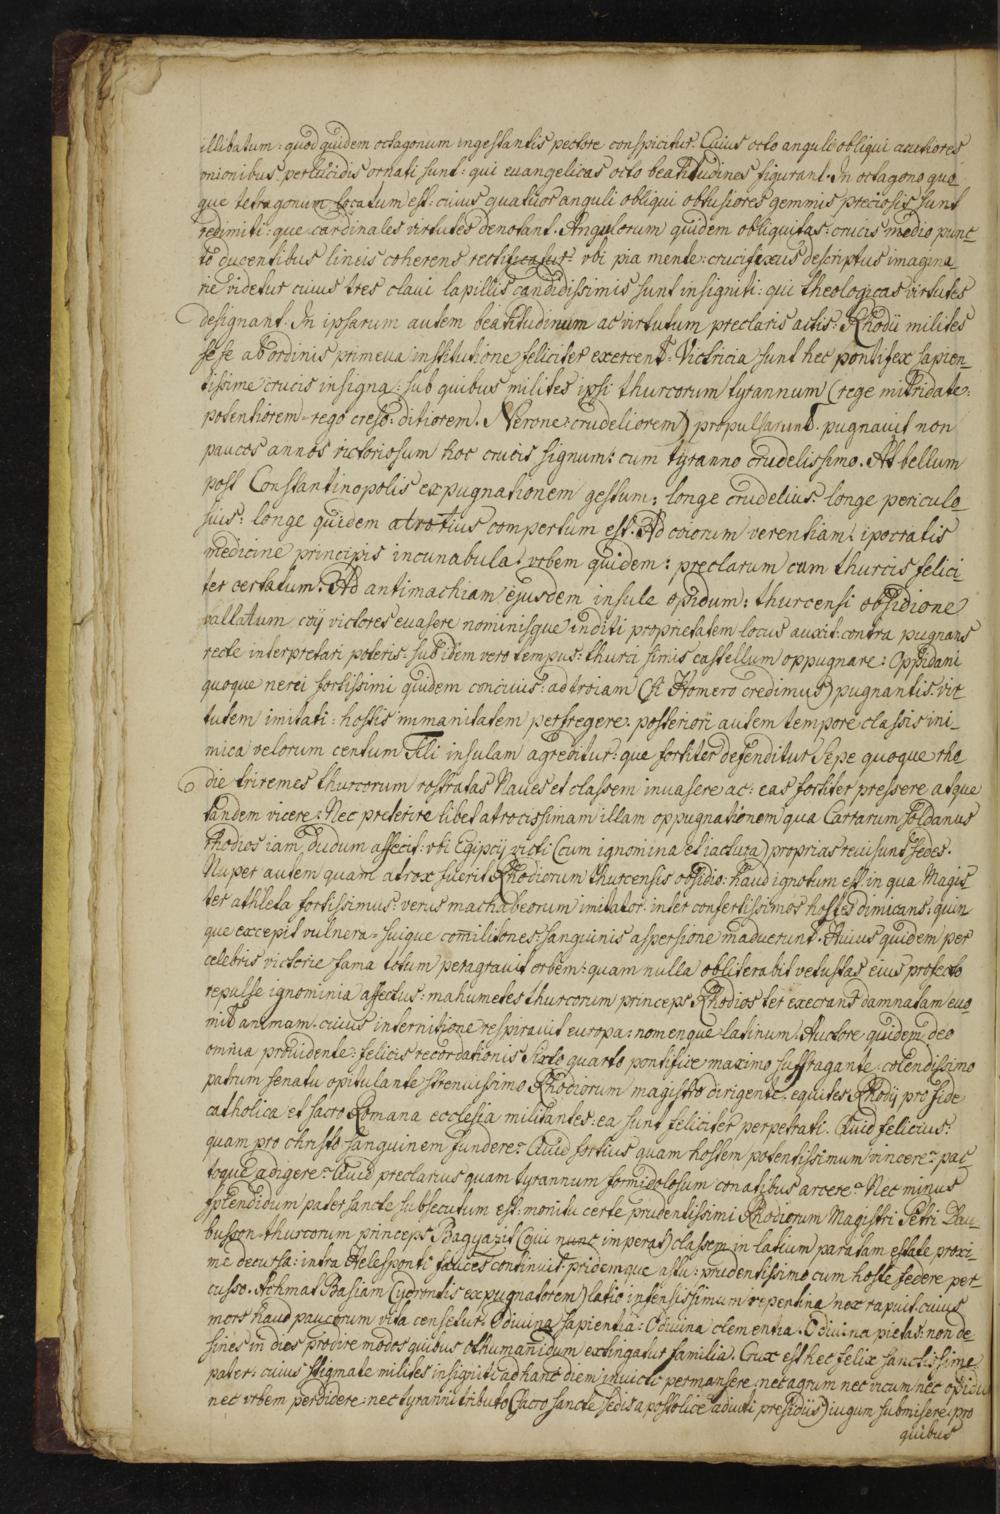 illibatum: quod quidem octagonum ingestantis pectore conspicitur. Cuius octo anguli obliqui auctiores
unionibus perlucidis ornati sunt: qui euangelicas octo beatitudines figurant. In octagono quo
que tetragonum locatum est: cuius quatuor anguli obliqui obtusiores gemmis preciosis sunt
redimiti: que cardinales virtutes denotant. Angulorum quidem obliquitas: crucis medio punc_
to ducentibus lineis coherens rectificatur: vbi pia mente: crucifixus descriptus imagina_
rie videtur cuius tres claui lapillis candidissimis sunt insigniti: qui theologicas virtutes
designant. In ipsarum autem beatitudinum ac virtutum preclaris actis: Rhodii milites
sese ab ordinis primeua institutione feliciter exercent. Victricia sunt hec pontifex sapien_
tissime crucis insigna: sub quibus milites ipsi thurcorum tyrannum (rege mitridate:
potentiorem = rego creso: ditiorem. Nerone: crudeliorem) propulsarunt. pugnauit non
paucos annos victoriosum hoc crucis signum: cum tyranno crudelissimo. At bellum
post Constantinopolis expugnationem gestum: longe crudelius: longe periculo_
sius: longe quidem atrotius compertum est. Ad coiorum verentiam: ipocratis
medicine principis incunabula: vrbem quidem: preclarum cum thurcis felici
ter certatum: Ad antimachiam ejusdem insule opidum: thurcensi obsidione
vallatum coij victores euasere nominisque inditi proprietatem locus auxit: contra pugnans
recte interpretari poteris: sub idem vero tempus: thurci simis castellum oppugnare: Oppidani
quoque nerei fortissimi quidem conciuis: ad troiam (si Homero credimus) pugnantis: vir
tutem imitati: hostis immanitatem perfregere: posteriori autem tempore classis ini_
mica velorum centum Tili insulam agreditur: que fortiter defenditur Sepe quoque rho
die triremes thurcorum rostratas Naues et classem inuasere ac: eas fortiter pressere atque
tandem vicere: Nec preterire libet atrocissimam illam oppugnationem qua Carrarum soldanus
Rhodios iam dudum affecit: vbi Egipcij victi (cum ignominia et iactura) proprias reuisunt sedes.
Nuper autem quam atrox fuerit Rhodiorum thurcensis obsidio: haud ignotum est: in qua Magis
ter athleta fortissimus: verus machabeorum imitator: inter confertissimos hostes dimicans: quin
que excepit vulnera = suique comilitones sanguinis aspersione maduerunt. Huius quidem per
celebris victorie fama totum peragrauit orbem: quam nulla obliterabit vetustas eius profecto
repulse ignominia affectus: mahumetes thurcorum princeps Rhodios ter execrans damnatam euo_
mit animam. cuius internitione respirauit europa: nomenque latinum. Auctore quidem deo
omnia prouidente: felicis recordationis Sixto quarto pontifice maximo suffragante: colendissimo
patrum senatu opitulante strenuissimo Rhodiorum magistro dirigente. equites Rhodij pro fide
catholica et sacro Romana ecclesia militantes: ea sunt feliciter perpetrati. Quid felicius:
quam pro christo sanguinem fundere? Quid fortius quam hostem potentissimum vincere? pac_
toque adigere? Quid preclarius quam tyrannum formidolosum conatibus arcere? Nec minus
splendidum pater sancte subsecutum est: monitu certe prudentissimi Rhodiorum Magistri Petri Dau_
busson = thurcorum princeps Bagyazit (qui nunc imperat) classem in latium paratam estate proxi_
me decursa: intra Helesponti fauces continuit: pridemque astu: prudentissimo cum hoste federe per
cusso. Achmat Basiam (ydrontis expugnatorem) latio infensissimum repentina nex rapuit: cuius
mors haud paucorum vita censetur. O diuina sapientia: O diuina clementia: O diuina pietas: non de
sines in dies prodire modos quibus othumanidum extingatur familia. Crux est hec felix sanctissime
pater: cuius stigmate milites insigniti: ad hanc diem inuicti permansere nec agrum nec vicum nec opidu
nec vrbem perdidere: nec tyranni tributo (sacro sancte sedis apostolice aduti presidiis) iugum submisere: pro
quibus